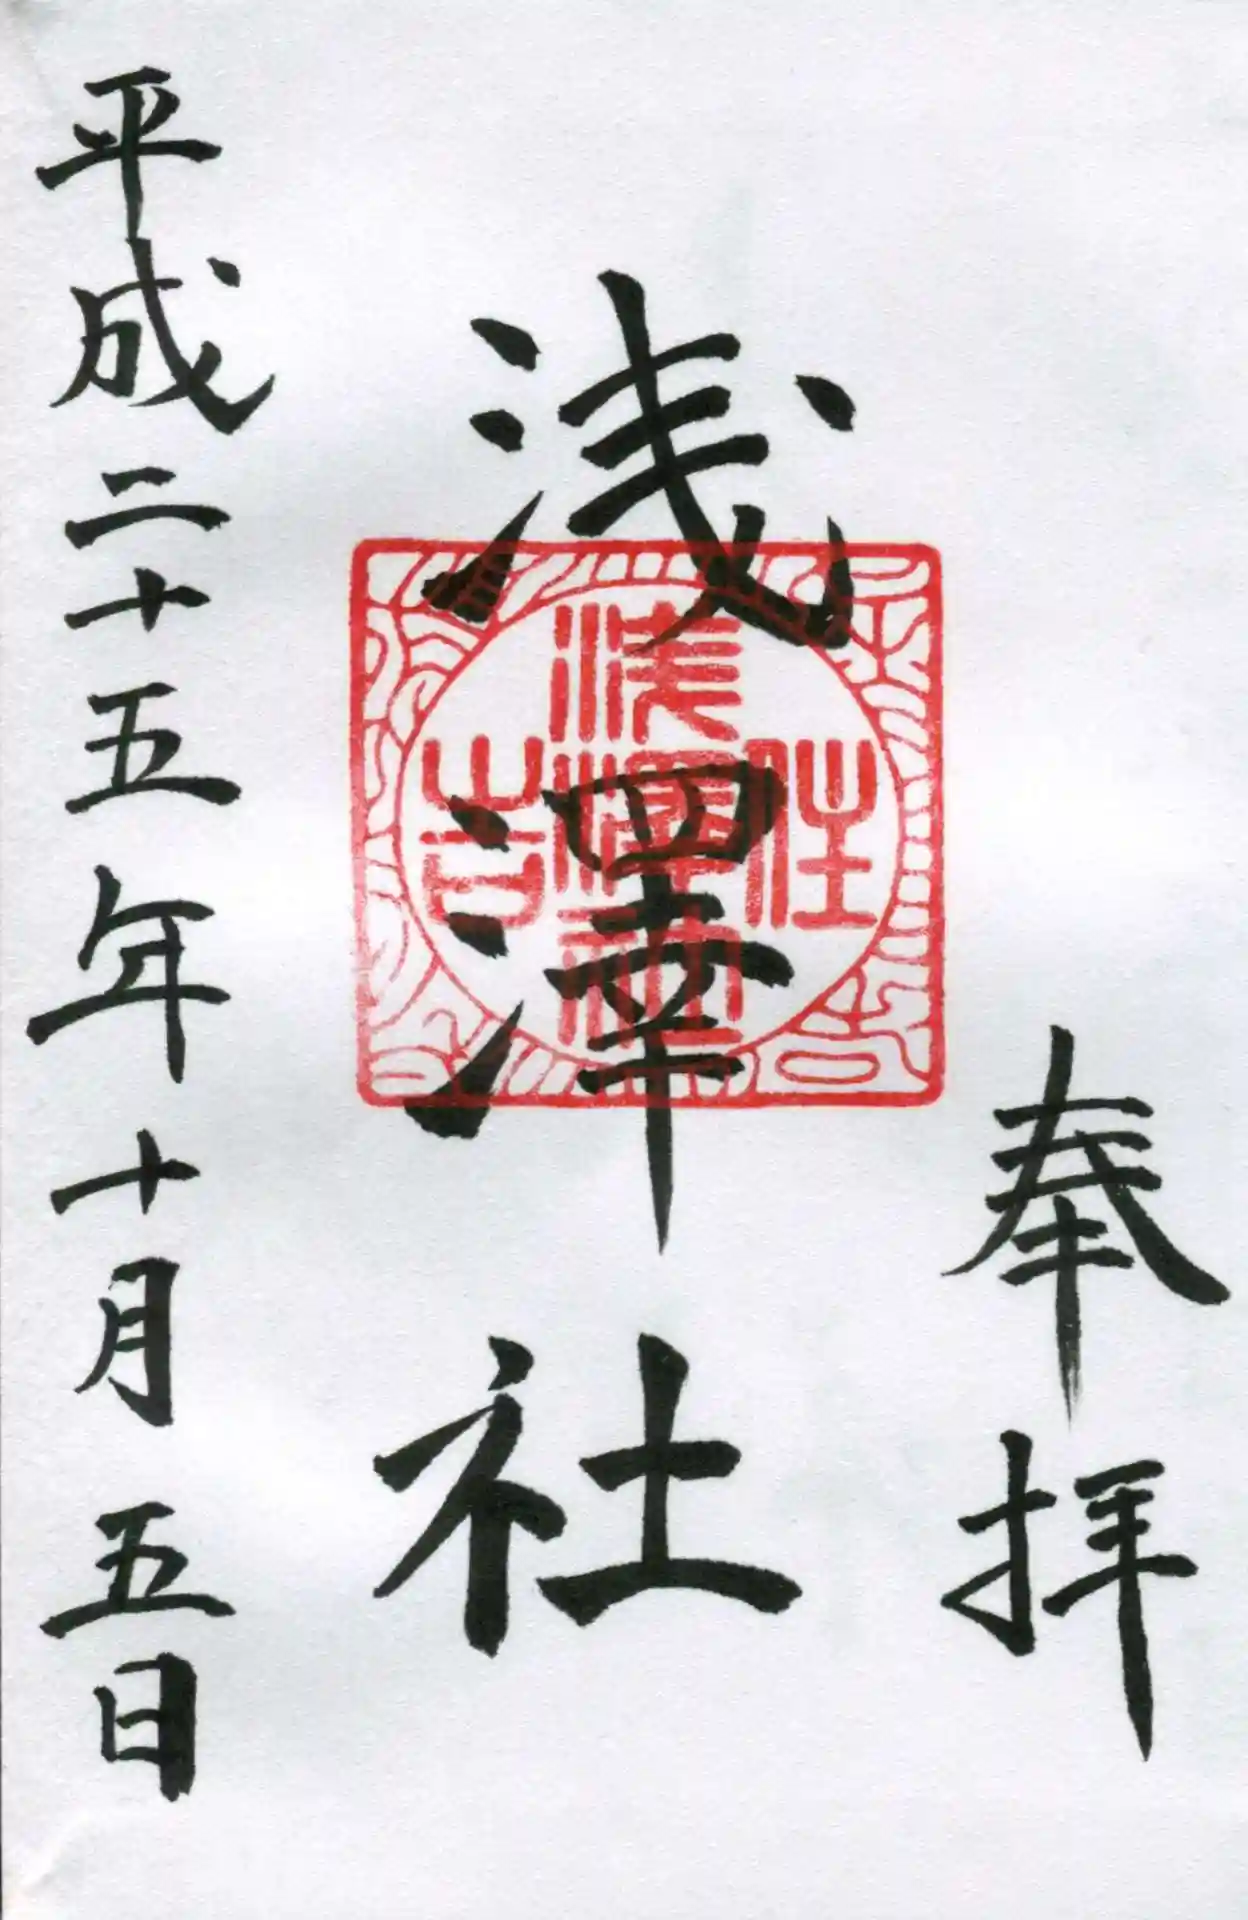 奉拝
浅澤社
住吉
浅澤社
平成二十五年十月五日